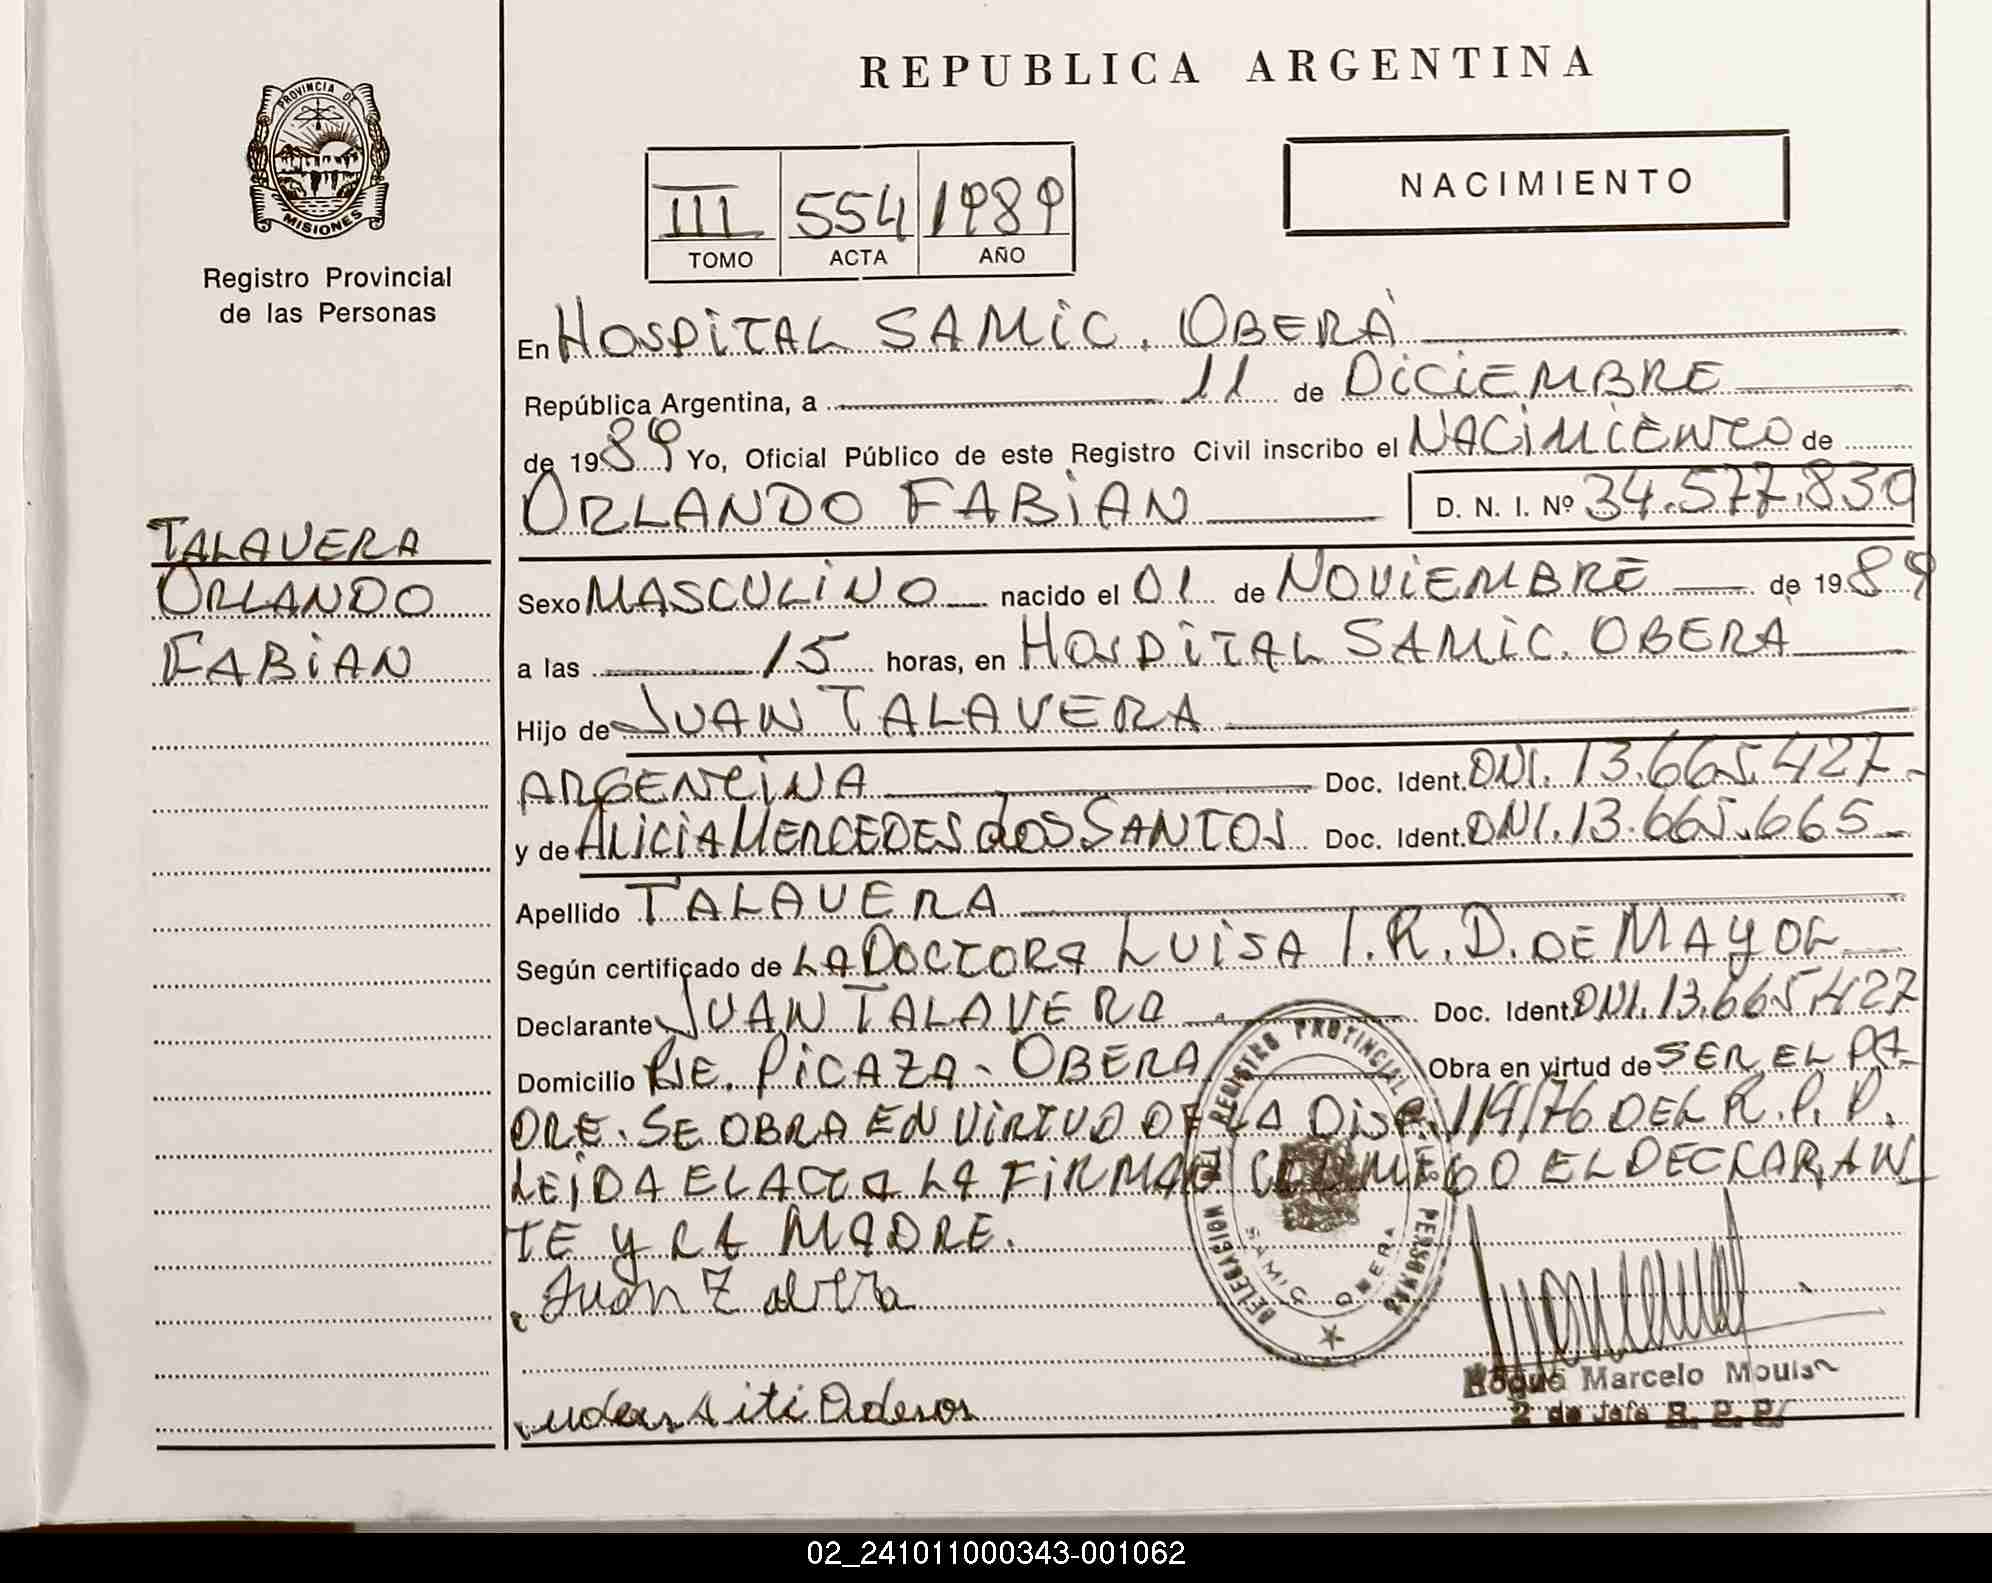 REPUBLICA ARGENTINA
PROVINCIA DE
MISIONES
Registro Provincial
de las Personas
III 554 1989
TOMO ACTA AÑO
NACIMIENTO
TALAVERA
ORLANDO
FABIAN
En HOSPITAL SAMIC. OBERÁ
República Argentina, a 11 de DICIEMBRE
de 1989 Yo, Oficial Público de este Registro Civil inscribo el NACIMIENTO de
ORLANDO FABIAN D. N. I. Nº 34.577.839
Sexo MASCULINO nacido el 01 de NOVIEMBRE de 1989
a las 15 horas, en HOSPITAL SAMIC. OBERÁ
Hijo de JUAN TALAVERA
ARGENTINA Doc. Ident. DNI. 13.665.427-
y de ALICIA MERCEDES dos SANTOS Doc. Ident. DNI. 13.665.665
Apellido TALAVERA
Según certificado de LA DOCTORA LUISA I. R. D. DE MAYOL
Declarante JUAN TALAVERA Doc. Ident. DNI. 13.665.427
Domicilio PJE. PICAZA - OBERA Obra en virtud de SER EL PA-
DRE. SE OBRA EN VIRTUD DE LA DISP. 114/76 DEL R. P. P.
LEIDA EL ACTA LA FIRMAN CONMIGO EL DECLARAN
TE Y LA MADRE.
Juan
DELEGACION REGISTRO PROVINCIAL DE LAS PERSONAS
SAMIC OBERA
Roque Marcelo
2 do Jefe R. P. P.
02_241011000343-001062